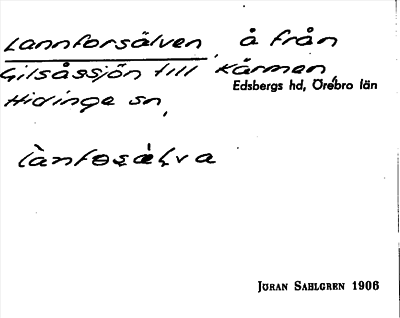 Lannforsälven, å från
Gilsåssjön till Kärmen,
Edsbergs hd, Örebro län
Hidinge sn,
lànfo̤s̤ὰļva
JÖRAN SAHLGREN 1906